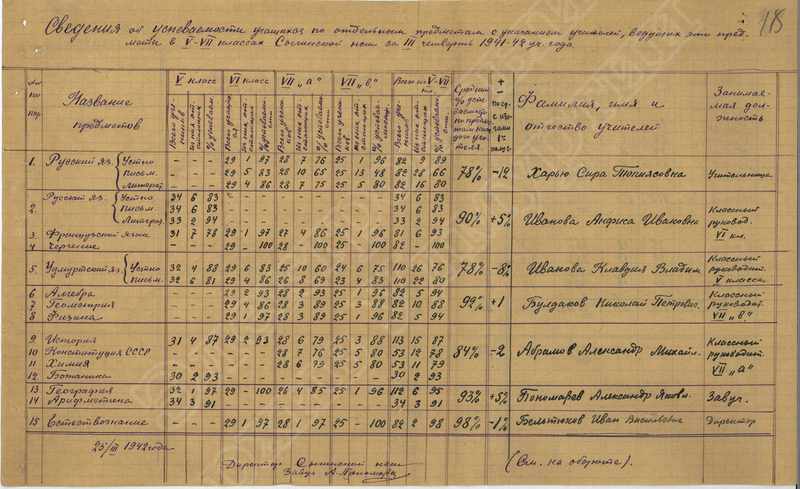 118
Сведения об успеваемости учащихся по отдельным предметам с указанием учителей, ведущих эти пред-
меты в V-VII классах Сосинской нсш за III четверть 1941-42 уч. года
Название предметов
V класс
VI класс
VII „а"
VII „в"
Всего в V-VII кл.
Фамилия, имя и отчество учителей
Занимаемая должность
1. Русский яз. Устно - - - 29 1 97 28 7 76 25 1 96 82 9 89
Письм. - - - 29 5 83 28 10 65 25 13 48 82 28 66 78% -12 Харью Сира Тойисовна Учительница
Литерат. - - - 29 4 86 28 7 75 25 5 80 82 16 80
Русский яз. Устно 34 6 83 - - - - - - - - - 34 6 83
2. Письм. 34 6 83 - - - - - - - - - 34 6 83
Литерат. 33 2 94 - - - - - - - - - 33 2 94 90% +5% Иванова Анфиса Ивановна Классный руковод. VI кл.
3. Французский языка 31 7 78 29 1 97 27 4 86 25 1 96 81 6 93
4 Черчение - - - 29 - 100 28 - 100 25 - 100 82 - 100
5. Удмуртский яз. Устно 32 4 88 29 6 83 25 10 60 24 6 75 110 26 76 78% -8% Иванова Клавдия Владим. Классный руководит. V класса
Письм. 32 6 81 29 4 86 26 8 69 23 4 83 110 22 80
6 Алгебра - - - 29 2 93 28 2 93 25 1 97 82 5 94
7 Геометрия - - - 29 4 86 28 3 89 25 3 88 82 10 88 92% +1 Булдаков Николай Петрович Классный руководит. VII „в"
8 Физика - - - 29 1 97 28 3 89 25 1 96 82 5 94
9 История 31 4 87 29 2 93 28 6 79 25 3 88 113 15 87
10 Конституция СССР - - - - - - 28 7 76 25 5 80 53 12 78 84% -2 Абрамов Александр Михайл. Классный руководит. VII „а"
11 Химия - - - - - - 28 6 79 25 5 80 53 11 79
12 Ботаника 30 2 93 - - - - - - - - - 30 2 93
13 География 32 1 97 29 - 100 26 4 85 25 1 96 112 6 95 93% +5% Пономарев Александр Яковл. Завуч.
14 Арифметика 34 3 91 - - - - - - - - - 34 3 91
15 Естествознание - - - 29 1 97 28 1 97 25 - 100 82 2 98 98% -1% Бельтюков Иван Васильевич Директор
25/III 1942 года
Директор Сосинской нсш
Завуч А. Пономарев
(См. на обороте).